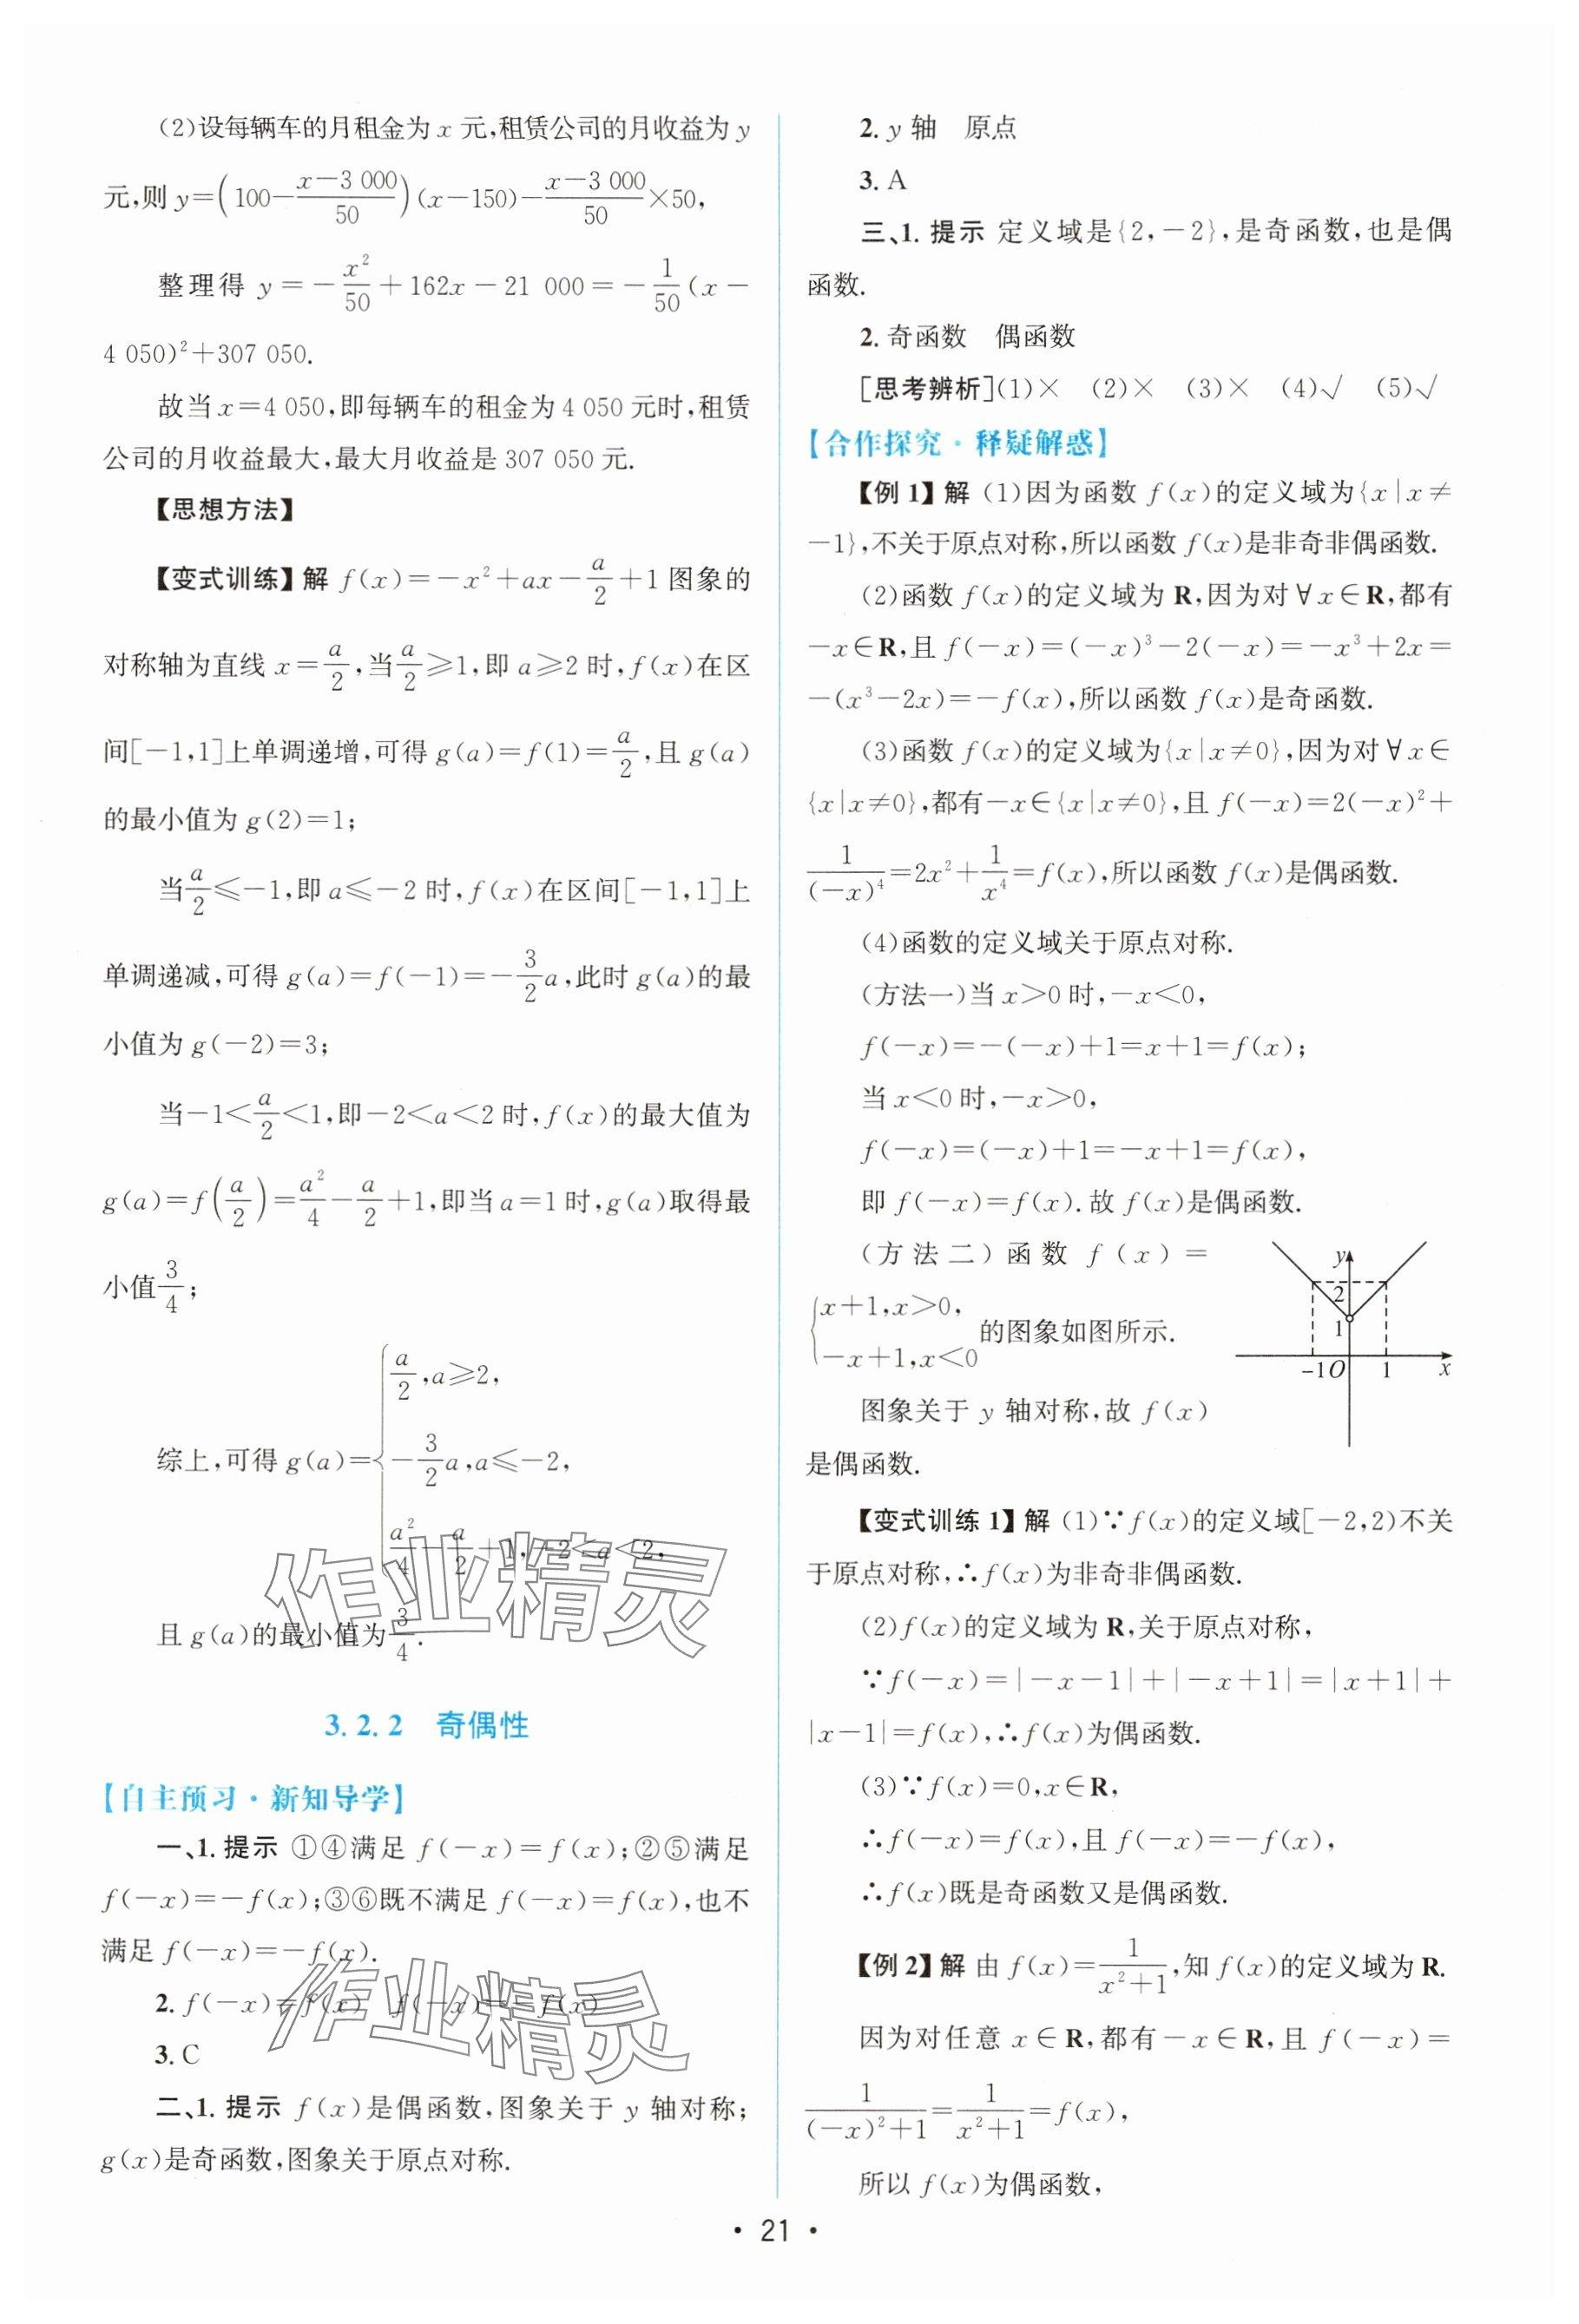 (2)设每辆车的月租金为 x 元,租赁公司的月收益为 y
元,则 y=(100-(x-3 000)/50)(x-150)-(x-3 000)/50×50,
整理得 y=-x²/50+162x-21 000=-1/50(x-
4 050)²+307 050.
故当 x=4 050,即每辆车的租金为 4 050 元时,租赁
公司的月收益最大,最大月收益是 307 050 元.
【思想方法】
【变式训练】解 f(x)=-x²+ax-a/2+1 图象的
对称轴为直线 x=a/2,当a/2≥1,即 a≥2 时,f(x)在区
间[-1,1]上单调递增,可得 g(a)=f(1)=a/2,且 g(a)
的最小值为 g(2)=1;
当a/2≤-1,即 a≤-2 时,f(x)在区间[-1,1]上
单调递减,可得 g(a)=f(-1)=-3/2a,此时 g(a)的最
小值为 g(-2)=3;
当-1<a/2<1,即-2<a<2 时,f(x)的最大值为
g(a)=f(a/2)=a²/4-a/2+1,即当 a=1 时,g(a)取得最
小值3/4;
综上,可得 g(a)={a/2,a≥2,
-3/2a,a≤-2,
a²/4-a/2+1,-2<a<2,
且 g(a)的最小值为3/4.
3.2.2 奇偶性
【自主预习·新知导学】
一、1.提示 ①④满足 f(-x)=f(x);②⑤满足
f(-x)=-f(x);③⑥既不满足 f(-x)=f(x),也不
满足 f(-x)=-f(x).
2.f(-x)=f(x) f(-x)=-f(x)
3.C
二、1.提示 f(x)是偶函数,图象关于 y 轴对称;
g(x)是奇函数,图象关于原点对称.
2.y 轴 原点
3.A
三、1.提示 定义域是{2,-2},是奇函数,也是偶
函数.
2.奇函数 偶函数
[思考辨析](1)× (2)× (3)× (4)√ (5)√
【合作探究·释疑解惑】
【例 1】解 (1)因为函数 f(x)的定义域为{x|x≠
-1},不关于原点对称,所以函数 f(x)是非奇非偶函数.
(2)函数 f(x)的定义域为 R,因为对∀x∈R,都有
-x∈R,且 f(-x)=(-x)³-2(-x)=-x³+2x=
-(x³-2x)=-f(x),所以函数 f(x)是奇函数.
(3)函数 f(x)的定义域为{x|x≠0},因为对∀x∈
{x|x≠0},都有-x∈{x|x≠0},且 f(-x)=2(-x)²+
1/(-x)⁴=2x²+1/x⁴=f(x),所以函数 f(x)是偶函数.
(4)函数的定义域关于原点对称.
(方法一)当 x>0 时,-x<0,
f(-x)=-(-x)+1=x+1=f(x);
当 x<0 时,-x>0,
f(-x)=(-x)+1=-x+1=f(x),
即 f(-x)=f(x).故 f(x)是偶函数.
(方法二)函数 f(x)=
{x+1,x>0,
-x+1,x<0 的图象如图所示.
y
2
1
-1 O 1 x
图象关于 y 轴对称,故 f(x)
是偶函数.
【变式训练 1】解 (1)∵f(x)的定义域[-2,2)不关
于原点对称,∴f(x)为非奇非偶函数.
(2)f(x)的定义域为 R,关于原点对称,
∵f(-x)=|-x-1|+|-x+1|=|x+1|+
|x-1|=f(x),∴f(x)为偶函数.
(3)∵f(x)=0,x∈R,
∴f(-x)=f(x),且 f(-x)=-f(x),
∴f(x)既是奇函数又是偶函数.
【例 2】解 由 f(x)=1/(x²+1),知 f(x)的定义域为 R.
因为对任意 x∈R,都有-x∈R,且 f(-x)=
1/((-x)²+1)=1/(x²+1)=f(x),
所以 f(x)为偶函数,
· 21 ·
作业精灵
作业精灵